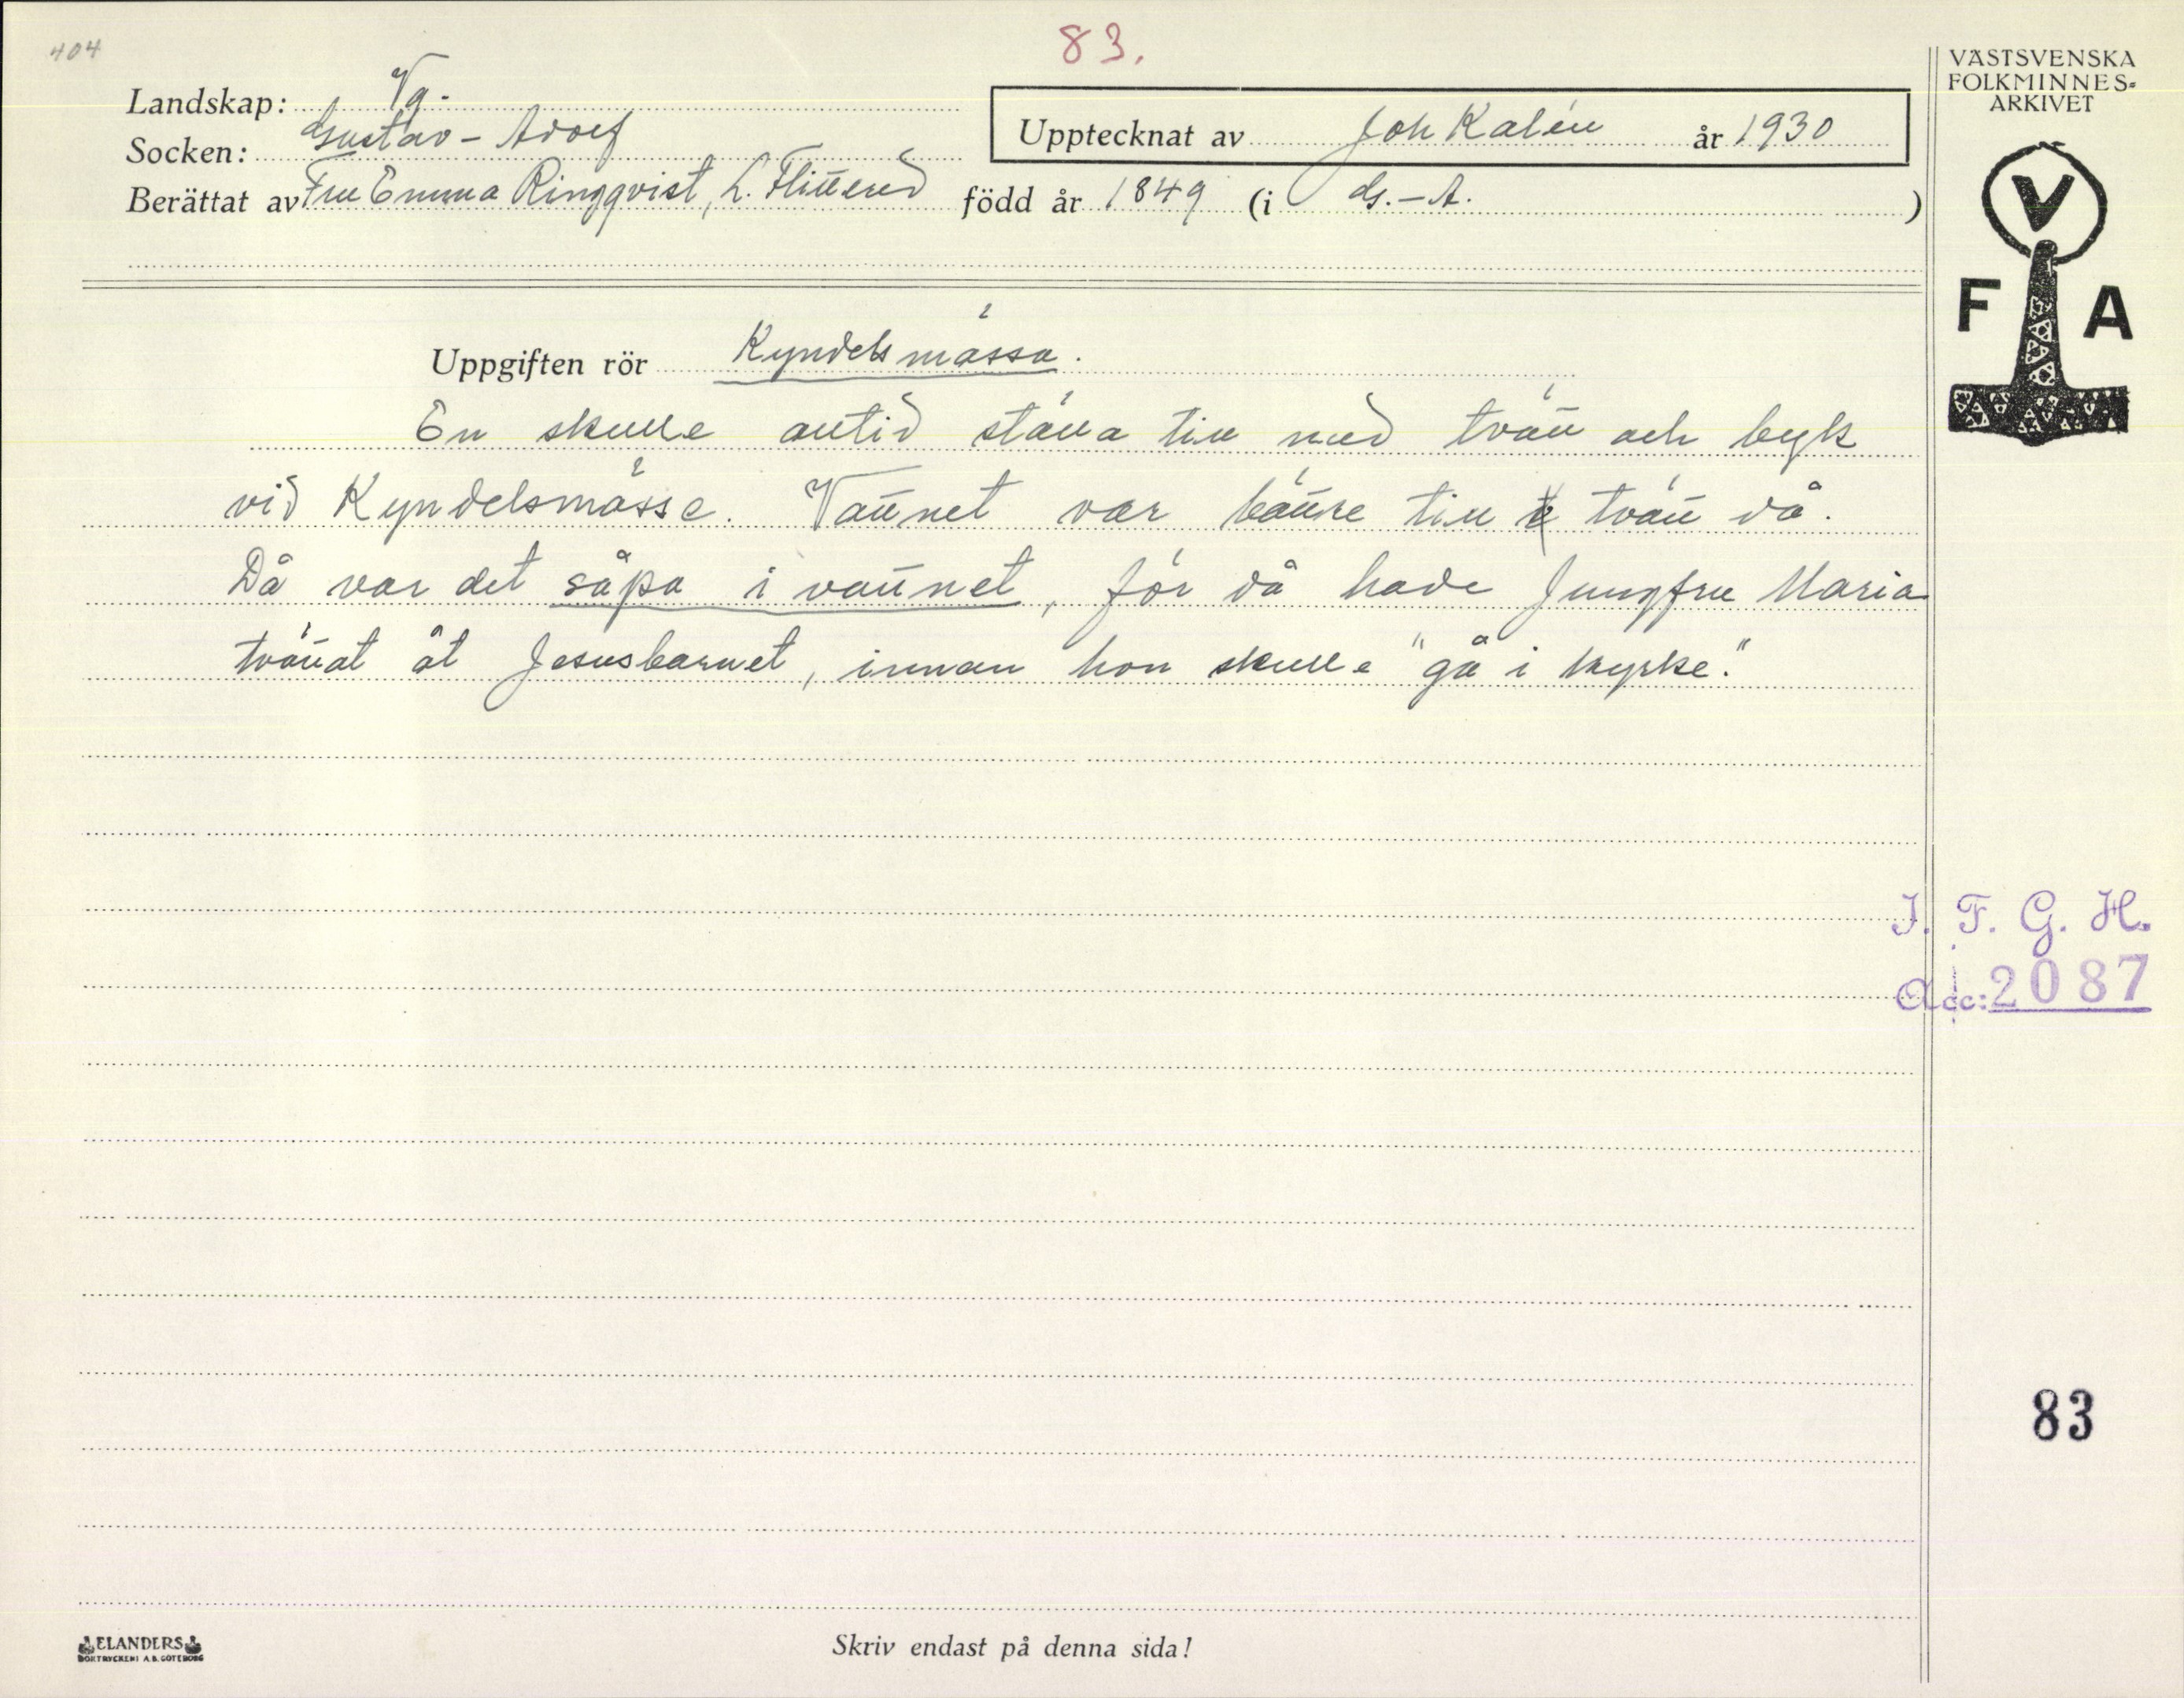 404
83.
VÄSTSVENSKA
FOLKMINNES-
ARKIVET
Landskap: Vg.
Socken: Gustav-Adolf
Upptecknat av Joh Kalén år 1930
Berättat av Fru Emma Ringqvist, L. född år 1849 (i G.-A. )
V
F A
Uppgiften rör Kyndelsmässa.
En skulle alltid ställa till med tvätt och byk
vid Kyndelsmässe. Vattnet var bättre till tvätt då.
Då var det såpa i vattnet, för då hade Jungfru Maria
tvättat åt Jesusbarnet, innan hon skulle "gå i kyrke".
I. F. G. H.
Acc: 2087
83
ELANDERS
BOKTRYCKERI A.B. GÖTEBORG
Skriv endast på denna sida!